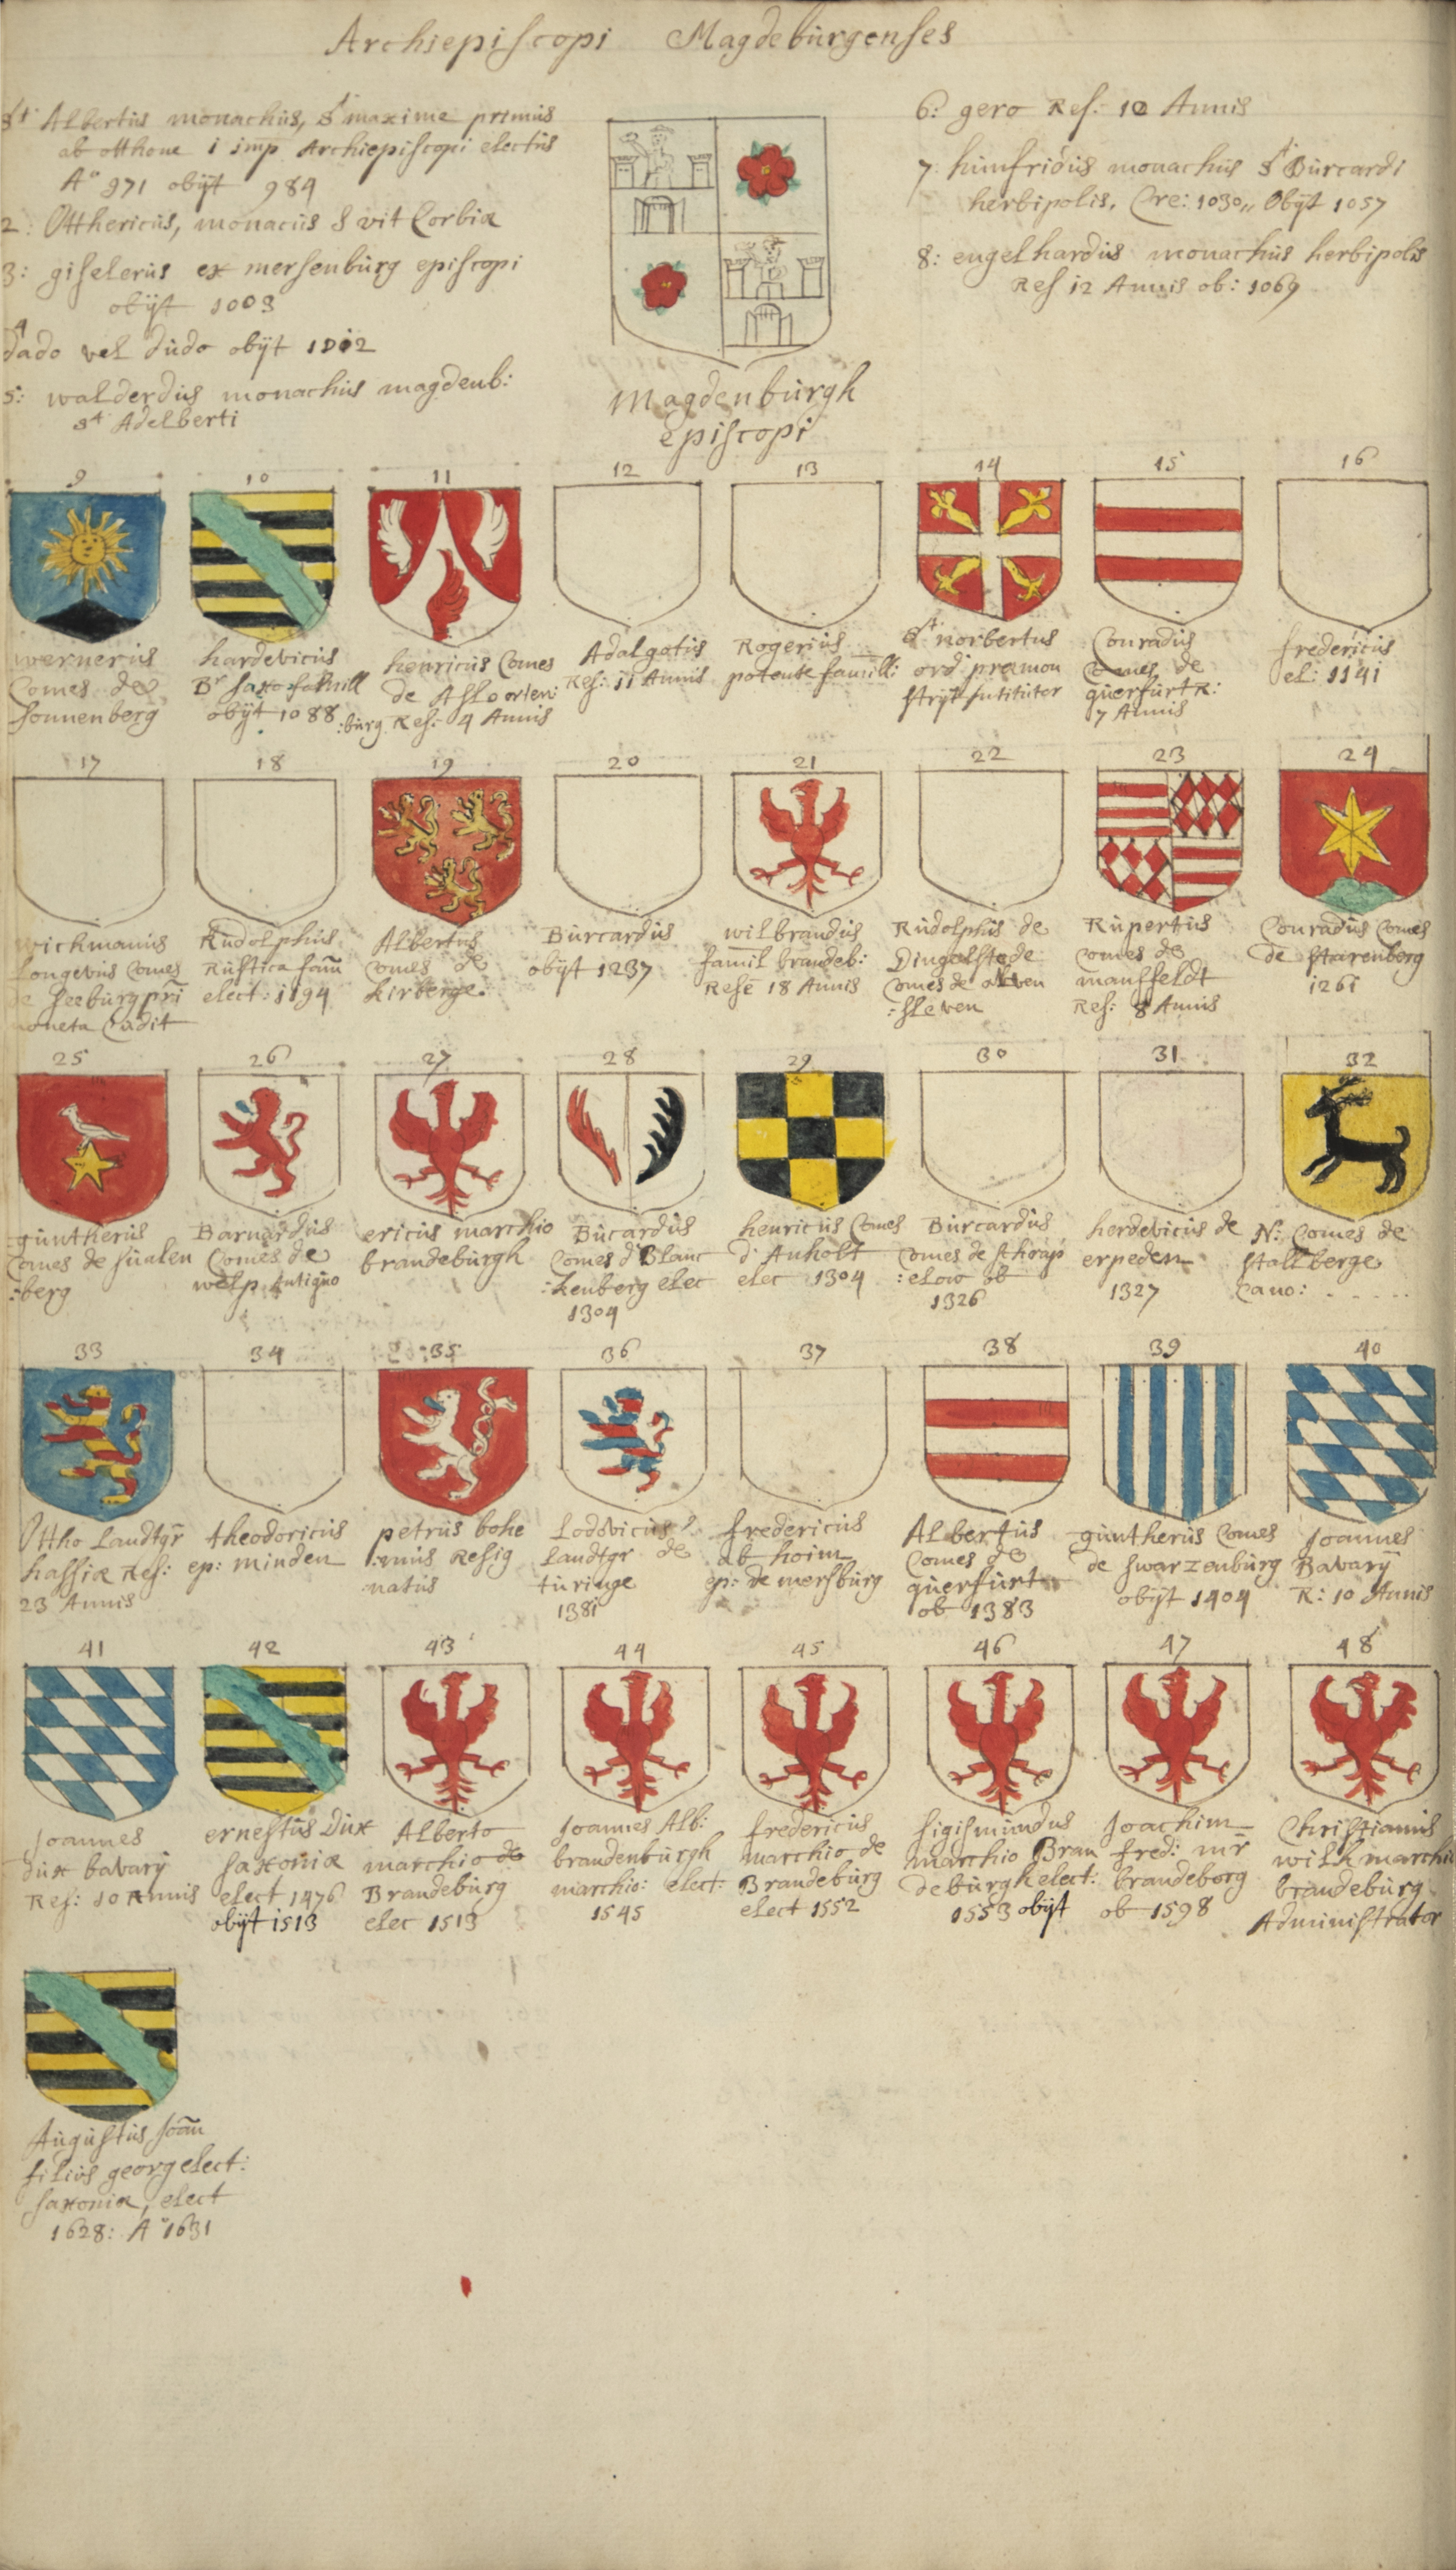 Archiepiscopi Magdeburgenses
St Albertus monachus, St maxime primus
ab otthone i imp Archiepiscopi electus
Ao 971 obijt 984
2: Otthericus, monacus S vit Corbiæ
3: giselerus ex mersenburg episcopi
obijt 1003
4
dado vel dudo obijt 1012
5: walderdus monachus magdenb:
st Adelberti
Magdenburgh
episcopi
6: gero Res: 10 Annis
7: humfridus monachus St Burcardi
herbipolis, Cre: 1030,, Obijt 1057
8: engelhardus monachus herbipolis
Res 12 Annis ob: 1069
9
wernerus
Comes de
sonnenberg
10
hardevicus
Br saxo
obijt 1088
11
henricus Comes
de
:burg Res: 4 Annis
12
Adalgotus
Res: 11 Annis
13
Rogerius
potente famill:
14
St norbertus
ord premon
strijt Intitutor
15
Conradus
Comes de
querfurt R:
7 Annis
16
fredericus
el: 1141
17
wickmanus
Longevus Comes
de Seeburg pri
moneta Cudit
18
Rudolphus
Rustica fam
elect: 1194
19
Albertus
Comes de
kirberge.
20
Burcardus
obijt 1237
21
wilbrandus
famil brandeb:
Rese 18 Annis
22
Rudolphus de
Dingelstede
Comes de
:sleven
23
Rupertus
comes de
mansfeldt
Res: 8 Annis
24
Conradus Comes
de starenberg
1261
25
guntherus
Comes de sualen
:berg
26
Barnardus
Comes de
welp Antiquo
27
ericus marchio
brandeburgh
28
Bucardus
Comes d Blanc
:kenberg elec
1304
29
henricus Comes
d'Anholt
elec 1304
30
Burcardus
comes de schrap
:elow ob
1326
31
herdevicus de
erpeden
1327
32
N: Comes de
stallberge
Cano: . . . . .
33
Ottho Landtgr
hassiæ Res:
23 Annis
34
theodoricus
ep: minden
35
petrus bohe
:mus Resig
natus
36
Lodovicus
Landtgr de
turinge
1381
37
fredericus
ab hoim
ep: de mersburg
38
Albertus
Comes de
querfurt
ob 1383
39
guntherus Comes
de swarzenburg
obijt 1404
40
Joannes
Bavarij
R: 10 Annis
41
Joannes
dux bavarij
Res: 10 Annis
42
ernestus Dux
saxoniæ
elect 1476
obijt 1513
43
Alberto
marchio de
Brandeburg
elec 1513
44
Joannes Alb:
brandenburgh
marchio: elect:
1545
45
fredericus
marchio de
Brandeburg
elect 1552
46
sigismundus
marchio Bran
deburgh elect:
1553 obijt
47
Joachim
fred: mr
brandeborg
ob 1598
48
Christianus
wilh marchio
brandeburg
Administrator
Augustus Joan
filius georg elect:
saxoniæ, elect
1628: Ao 1631